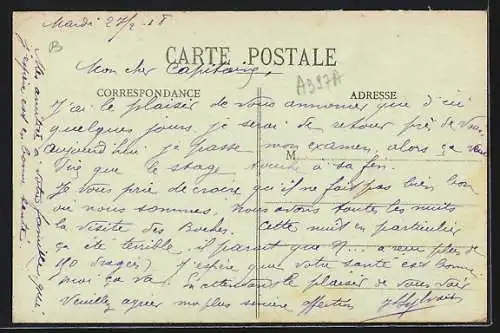 Mardi 27/2 18
B
CARTE POSTALE
A397A
Mon cher Capitaine,
CORRESPONDANCE
ADRESSE
J'ai le plaisir de vous annoncer que d'ici
quelques jours je serai de retour près de vous
aujourd'hui je passe mon examen, alors ça veut
M
dire que le stage touche à sa fin.
Je vous prie de croire qu'il ne fait pas bien bon
où nous sommes. Nous avons toutes les nuits
la visite des Boches. Cette nuit en particulier
ça été terrible. il paraît que N... a reçu plus de
dragées) J'espère que votre santé est bonne.
moi ça va. En attendant le plaisir de vous voir
Veuillez agréer ma plus sincère affection
Mes amitiés à votre famille qui
j'espère est en bonne santé.